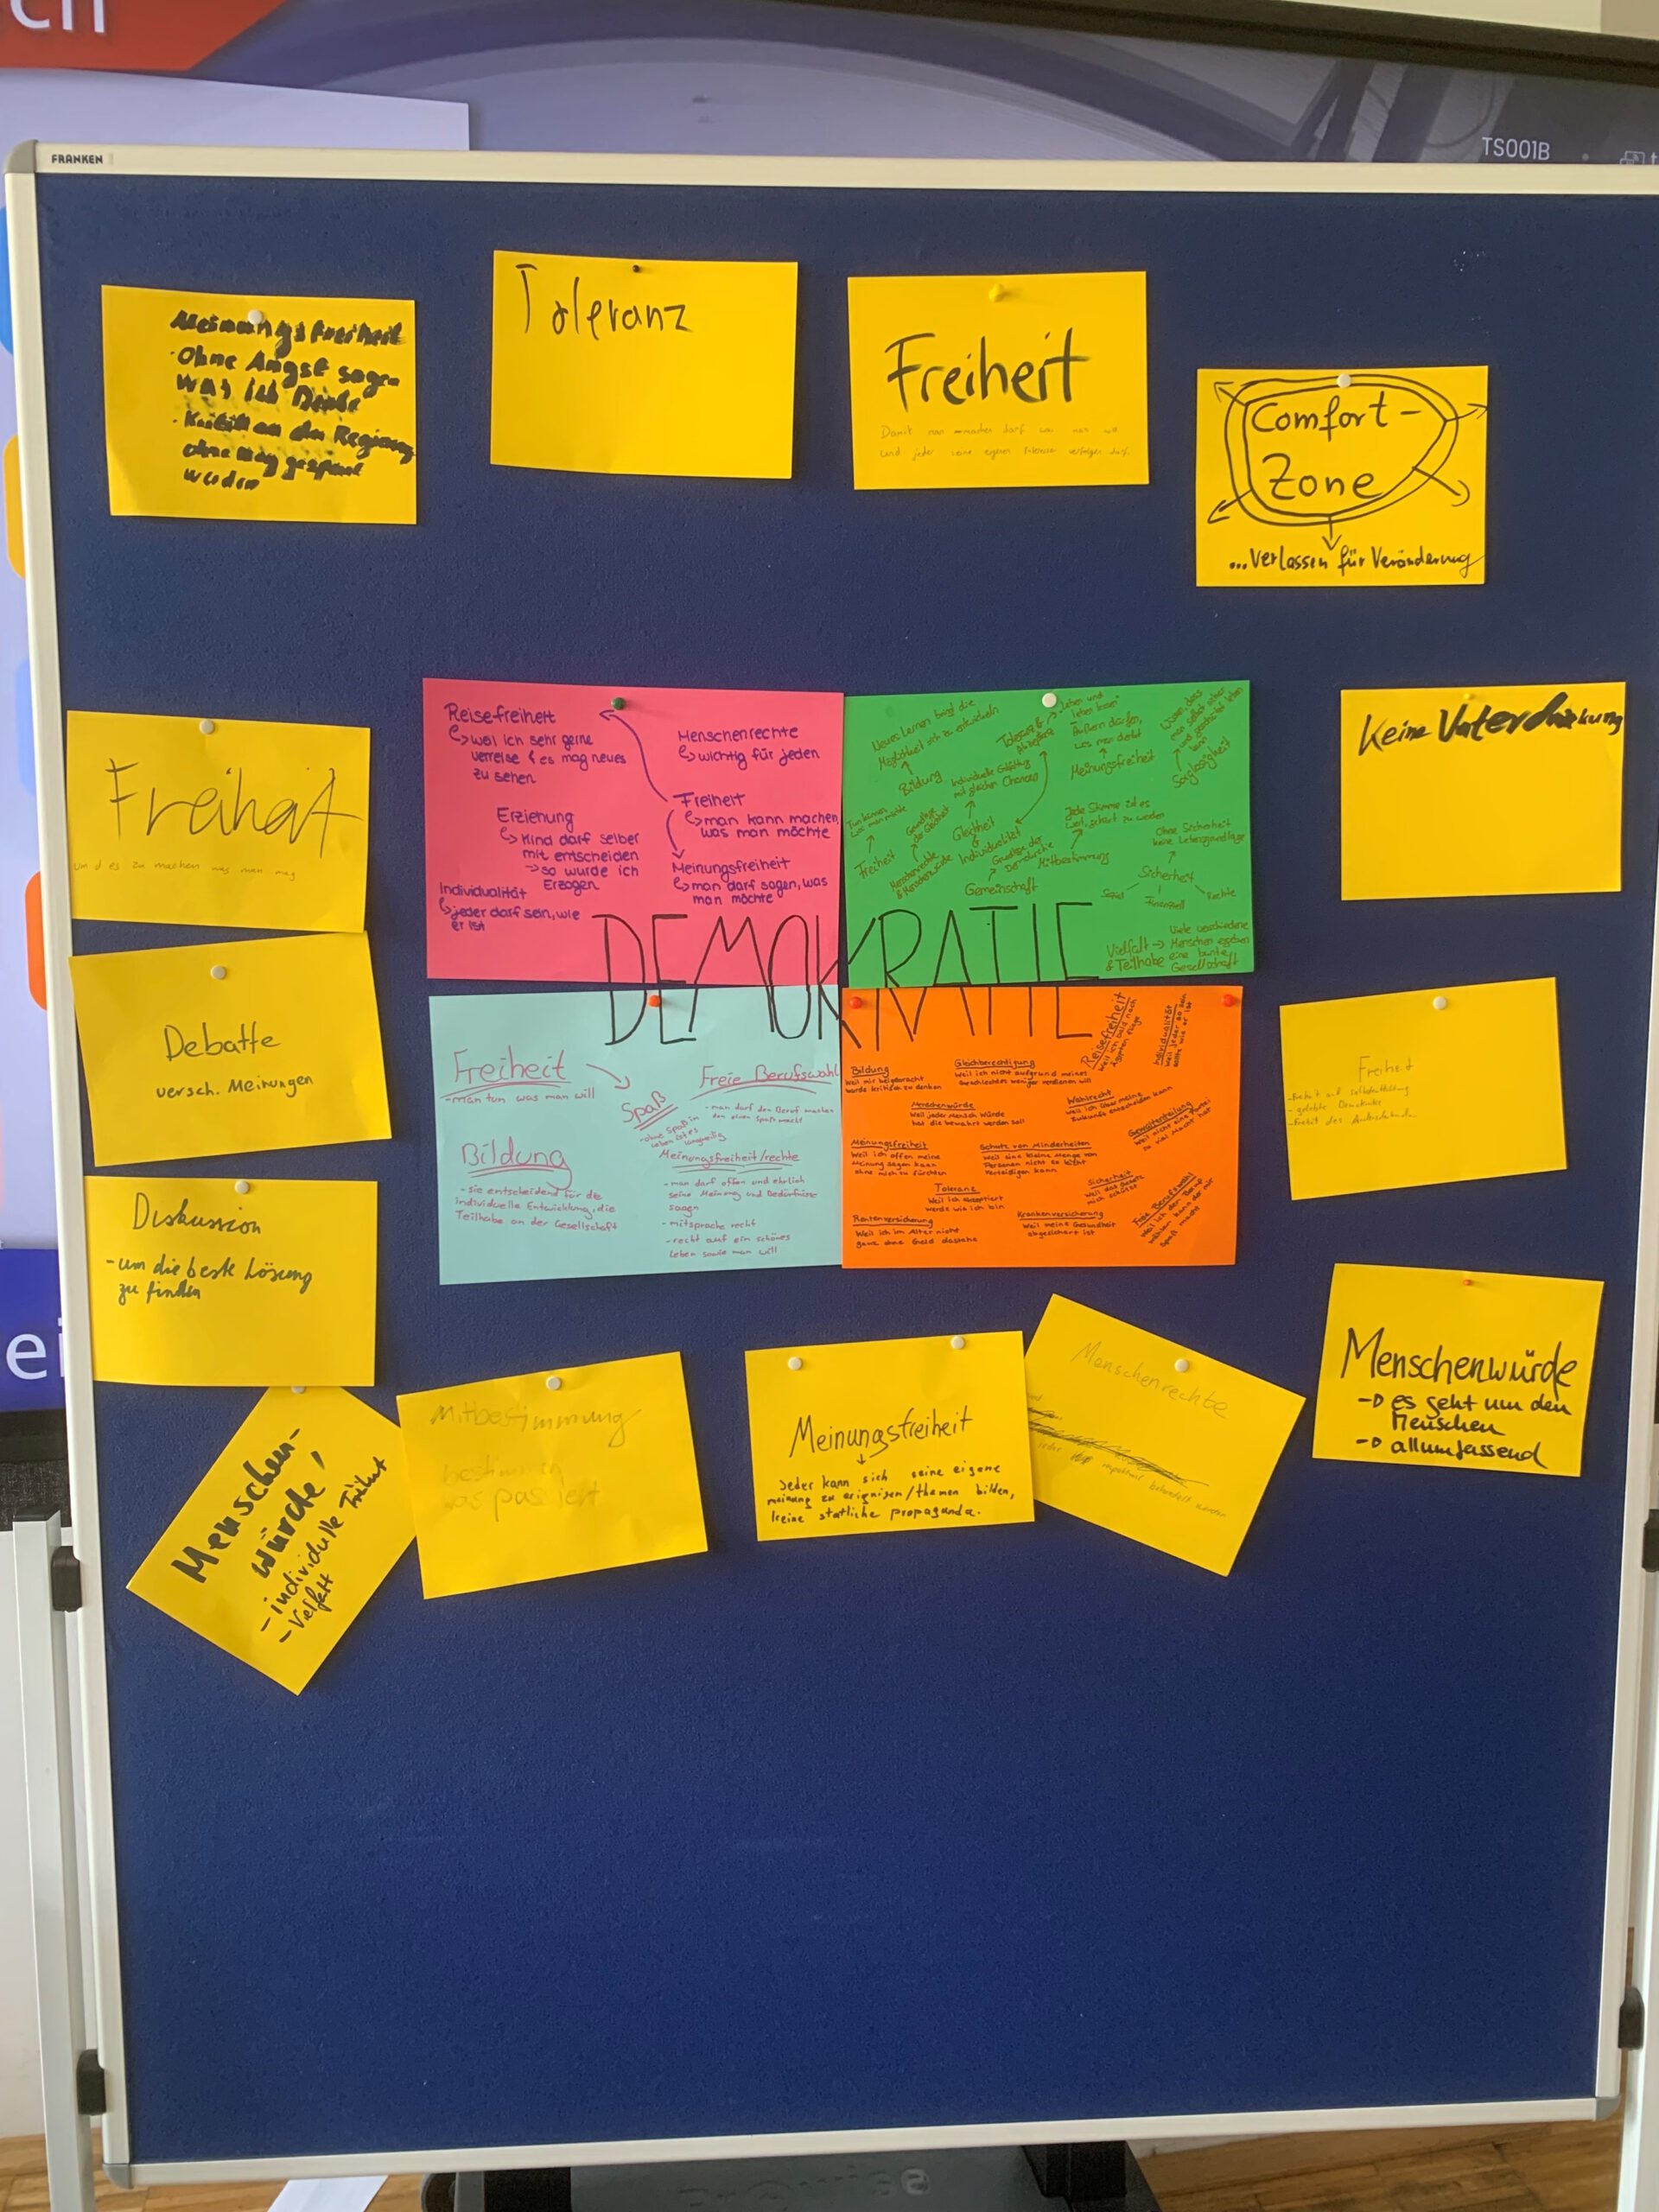 ch
TS001B
FRANKEN
Meinungsfreiheit
· Ohne Angst sagen
was ich Denke
· Kritik an der Regierung
ohne
werden
Toleranz
Freiheit
Damit man machen darf was man will
und jeder seine eigenen Interessen verfolgen darf.
Comfort-
Zone
...verlassen für Veränderung
Reisefreiheit
weil ich sehr gerne
verreise & es mag neues
zu sehen
Menschenrechte
wichtig für jeden
Freiheit
man kann machen,
was man möchte
Erziehung
Kind darf selber
mit entscheiden
→ so wurde ich
Erzogen
Meinungsfreiheit
man darf sagen, was
man möchte
Individualität
jeder darf sein, wie
er ist
Neues Lernen birgt die
Möglichkeit sich zu entwickeln
Bildung
Toleranz &
Akzeptanz
leben und
leben lassen
Äußern dürfen,
was man denkt
Meinungsfreiheit
Wissen, dass
man selbst sicher
und geschützt leben
kann
Sorglosigkeit
Tun können
was man möchte
Freiheit
Menschenrechte
& Menschenwürde
Individuelle Entfaltung
mit gleichen Chancen
Gleichheit
Individualität
Gemeinschaft
Grundlage der
Demokratie
Mitbestimmung
Jede Stimme ist es
wert, gehört zu werden
Ohne Sicherheit
keine Lebensgrundlage
Sicherheit
Sozial
Finanziell
Rechte
Vielfalt →
& Teilhabe
Viele verschiedene
Menschen ergeben
eine bunte
Gesellschaft
Keine Unterdrückung
Freiheit
um d es zu machen was man mag
DEMOKRATIE
Debatte
versch. Meinungen
Freiheit
- man tun was man will
Spaß
- ohne Spaß im
Leben ist es
langweilig
Freie Berufswahl
- man darf den Beruf machen
den einen Spaß macht
Bildung
- sie entscheidend für die
individuelle Entwicklung, die
Teilhabe an der Gesellschaft
Meinungsfreiheit/rechte
- man darf offen und ehrlich
seine Meinung und Bedürfnisse
sagen
- mitsprache recht
- recht auf ein schönes
Leben sowie man will
Bildung
Weil mir beigebracht
wurde kritisch zu denken
Gleichberechtigung
Weil ich nicht aufgrund meines
Geschlechts weniger verdienen will
Reisefreiheit
Weil ich bald nach
Ägypten fliege
Individualität
Weil jeder so sein
sollte wie er ist
Menschenwürde
Weil jeder Mensch Würde
hat die bewahrt werden soll
Wahlrecht
Weil ich über meine
Zukunft entscheiden kann
Gewaltenteilung
Weil nicht eine Partei
zu viel Macht hat
Meinungsfreiheit
Weil ich offen meine
Meinung sagen kann
ohne mich zu fürchten
Schutz von Minderheiten
Weil eine kleine Menge von
Personen nicht so leicht
verteidigen kann
Toleranz
Weil ich akzeptiert
werde wie ich bin
Sicherheit
Weil das Gesetz
mich schützt
Rentenversicherung
Weil ich im Alter nicht
ganz ohne Geld dastehe
Krankenversicherung
Weil meine Gesundheit
abgesichert ist
Freie Berufswahl
Weil ich den Beruf
wählen kann der mir
Spaß
macht
Freiheit
- Freiheit auf Selbstentfaltung
- gelebte Demokratie
- Freiheit des Andersdenkenden
Diskussion
- um die beste Lösung
zu finden
ei
Menschen-
würde,
- individuelle
- Vielfalt
Mitbestimmung
bestimmen
was passiert
Meinungsfreiheit
↓
Jeder kann sich seine eigene
meinung zu erignisen/themen bilden,
keine statliche propaganda.
Menschenrechte
jeder respektvoll behandelt werden
Menschenwürde
→ es geht um den
Menschen
→ allumfassend